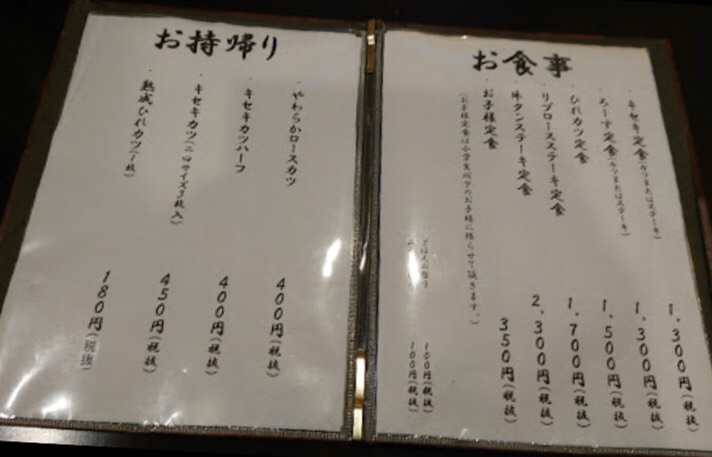 お食事
・キセキ定食(カツまたはステーキ) 1,300円(税抜)
・ろーす定食(カツまたはステーキ) 1,300円(税抜)
・ひれカツ定食 1,500円(税抜)
・リブロースステーキ定食 1,700円(税抜)
・牛タンステーキ定食 2,300円(税抜)
・お子様定食 350円(税抜)
(お子様定食は小学生以下のお子様に限らせて頂きます。)
ごはん大盛り 100円(税抜)
100円(税抜)
お持帰り
・やわらかロースカツ 400円(税抜)
・キセキカツハーフ 400円(税抜)
・キセキカツ(二口サイズ3枚入) 450円(税抜)
・熟成ひれカツ(1枚) 180円(税抜)